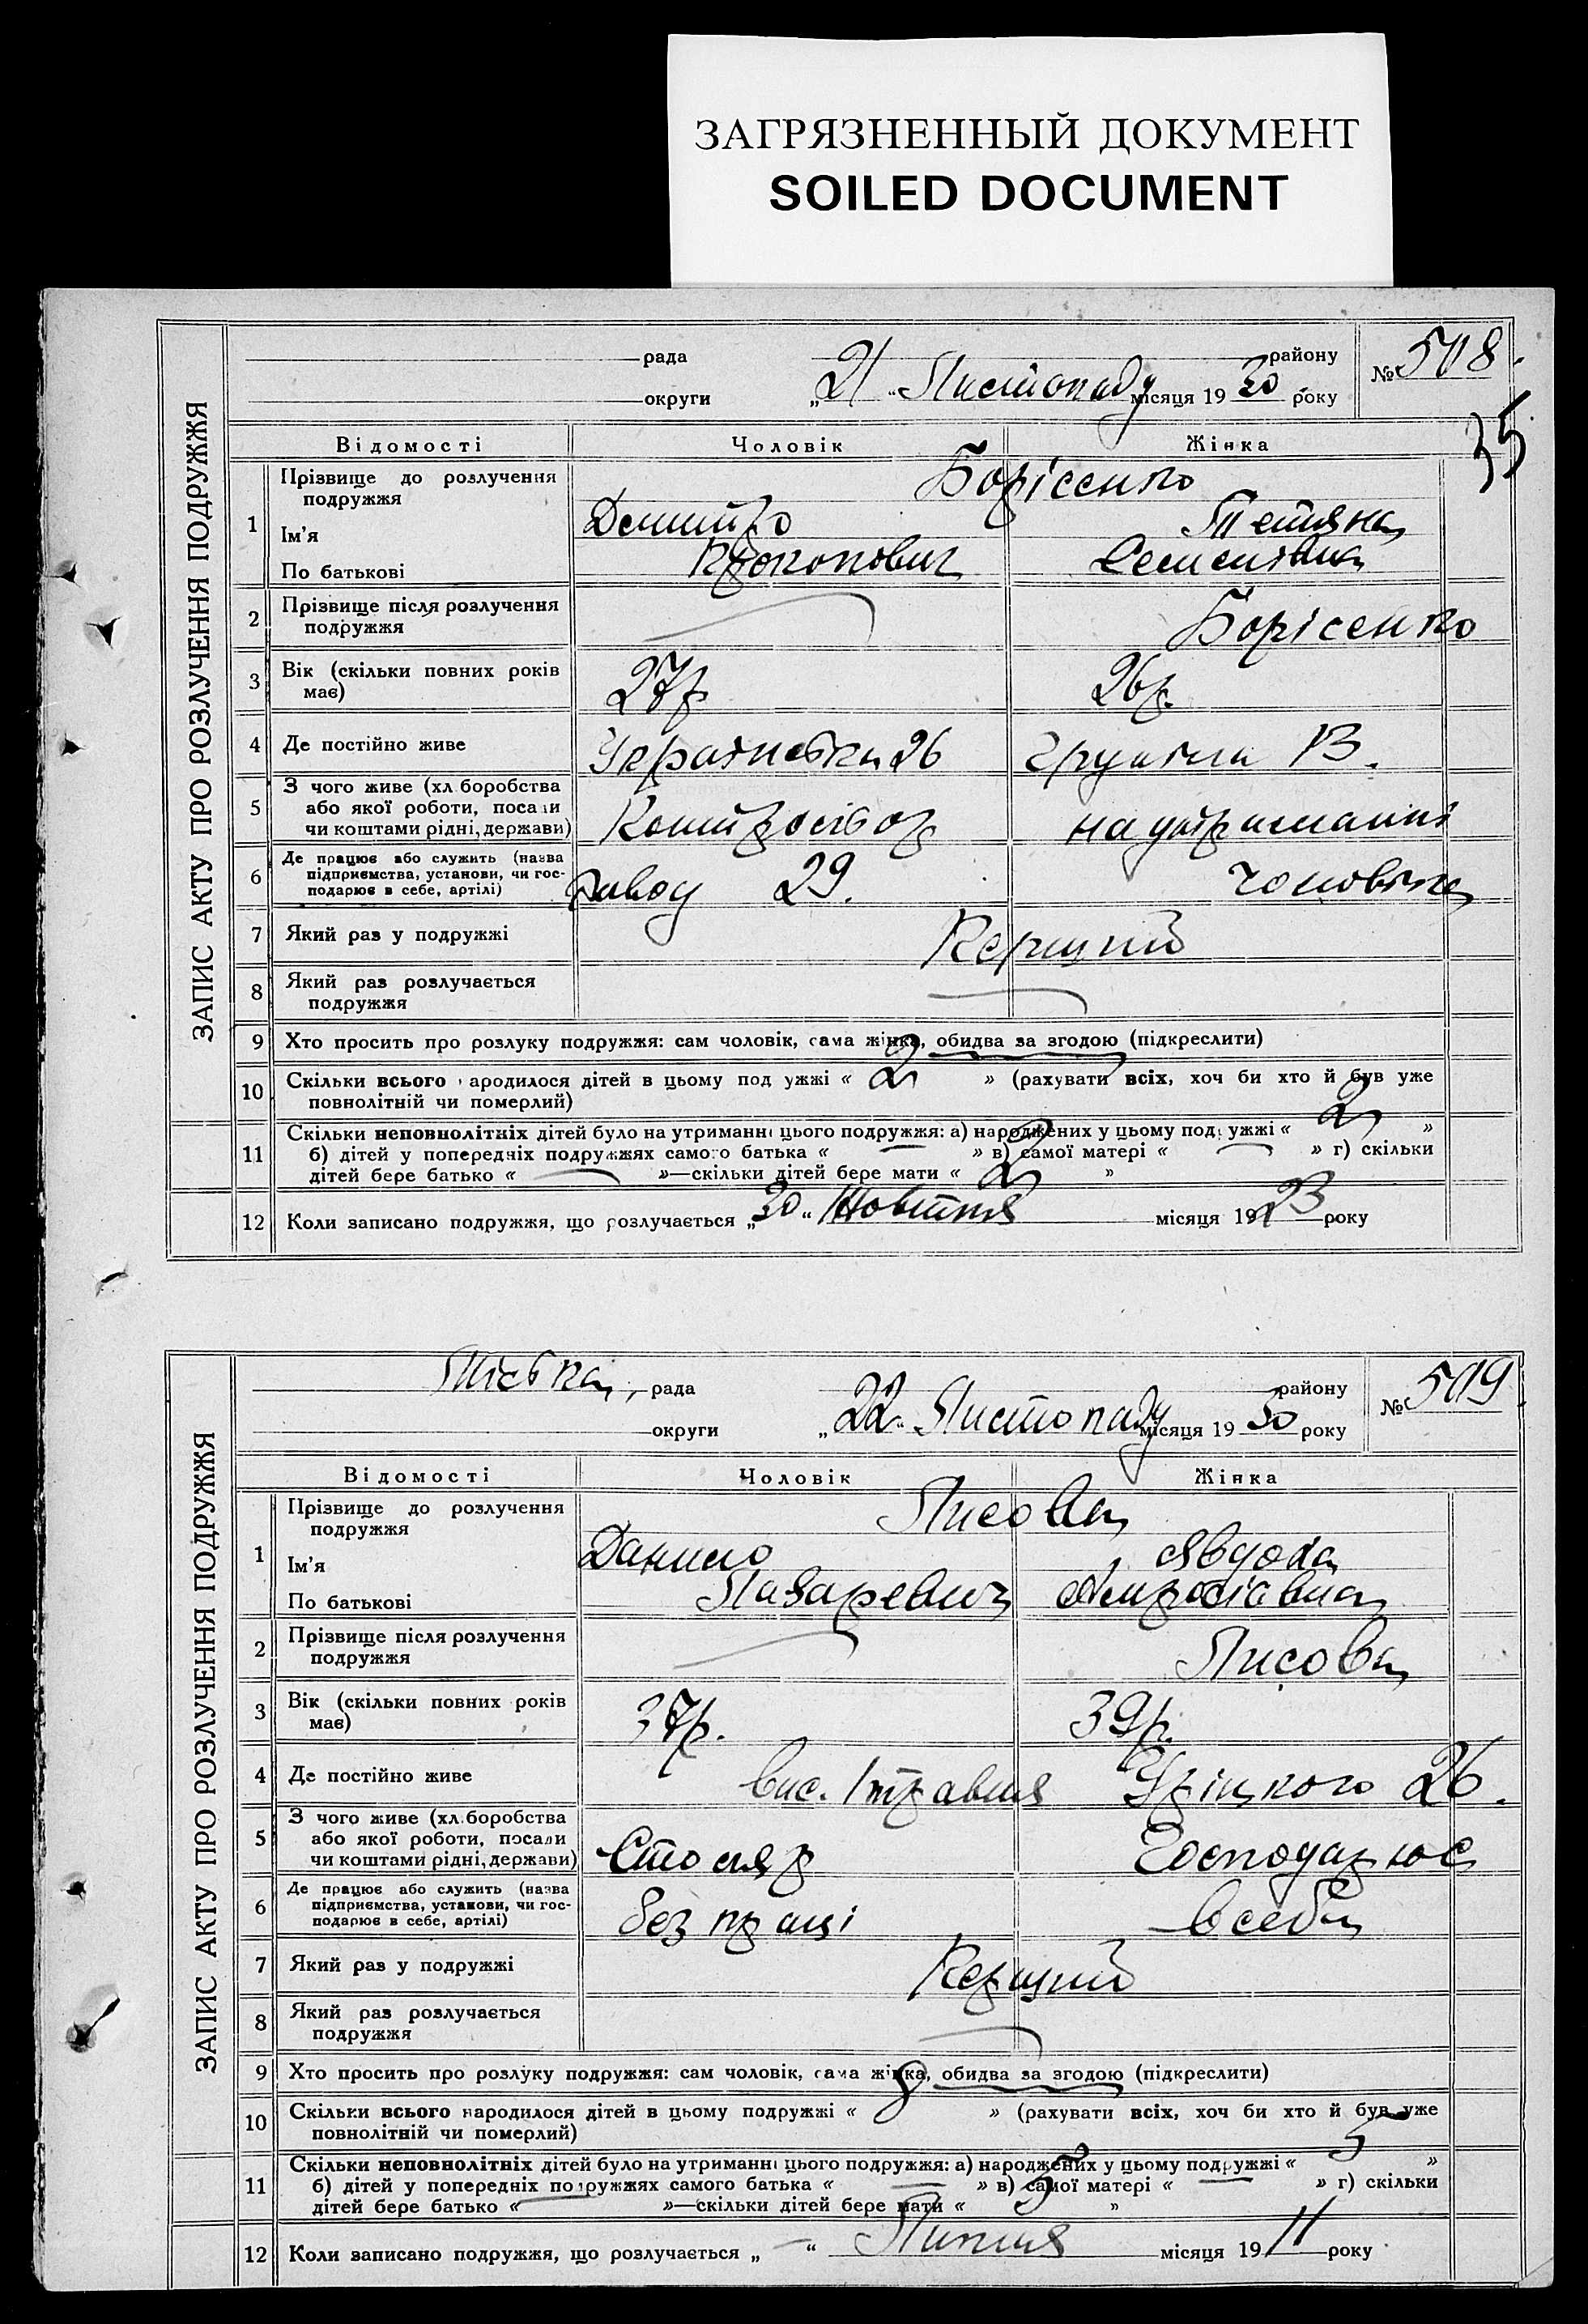 ЗАГРЯЗНЕННЫЙ ДОКУМЕНТ
SOILED DOCUMENT
ЗАПИС АКТУ ПРО РОЗЛУЧЕННЯ ПОДРУЖЖЯ
рада району № 508.
округи „21“ Листопаду місяця 1930 року
35
Відомості Чоловік Жінка
1 Прізвище до розлучення подружжя Борісенко
Ім'я Дмитро Тетяна
По батькові Прокопович Семенівна
2 Прізвище після розлучення подружжя Борісенко
3 Вік (скільки повних років має) 27р 26р.
4 Де постійно живе 26 13.
5 З чого живе (хл боробства
або якої роботи, посади
чи коштами рідні, держави) на утриманні
6 Де працює або служить (назва
підприємства, установи, чи гос-
подарює в себе, артілі) завод 29. чоловіка
7 Який раз у подружжі Перший
8 Який раз розлучається
подружжя
9 Хто просить про розлуку подружжя: сам чоловік, сама жінка, обидва за згодою (підкреслити)
10 Скільки всього народилося дітей в цьому подружжі « 2 » (рахувати всіх, хоч би хто й був уже
повнолітній чи померлий)
11 Скільки неповнолітніх дітей було на утриманні цього подружжя: а) народжених у цьому подружжі « 2 »
б) дітей у попередніх подружжях самого батька « — » в) самої матері « — » г) скільки
дітей бере батько « — »—скільки дітей бере мати « 2 »
12 Коли записано подружжя, що розлучається „30“ Жовтня місяця 1923 року
ЗАПИС АКТУ ПРО РОЗЛУЧЕННЯ ПОДРУЖЖЯ
Міська рада району № 509.
округи „22“ Листопаду місяця 1930 року
Відомості Чоловік Жінка
1 Прізвище до розлучення подружжя Лисова
Ім'я Данило Явдоха
По батькові Лазаревич Амвросіївна
2 Прізвище після розлучення подружжя Лисова
3 Вік (скільки повних років має) 37р. 39р.
4 Де постійно живе вис. 1 травня Уріцкого 26.
5 З чого живе (хл.боробства
або якої роботи, посади
чи коштами рідні, держави) Столяр Господарює
6 Де працює або служить (назва
підприємства, установи, чи гос-
подарює в себе, артілі) без праці в себе
7 Який раз у подружжі Перший
8 Який раз розлучається
подружжя
9 Хто просить про розлуку подружжя: сам чоловік, сама жінка, обидва за згодою (підкреслити)
10 Скільки всього народилося дітей в цьому подружжі « 8 » (рахувати всіх, хоч би хто й був уже
повнолітній чи померлий)
11 Скільки неповнолітніх дітей було на утриманні цього подружжя: а) народжених у цьому подружжі « 5 »
б) дітей у попередніх подружжях самого батька « — » в) самої матері « — » г) скільки
дітей бере батько « — »—скільки дітей бере мати « 5 »
12 Коли записано подружжя, що розлучається „ — “ Липня місяця 1911 року